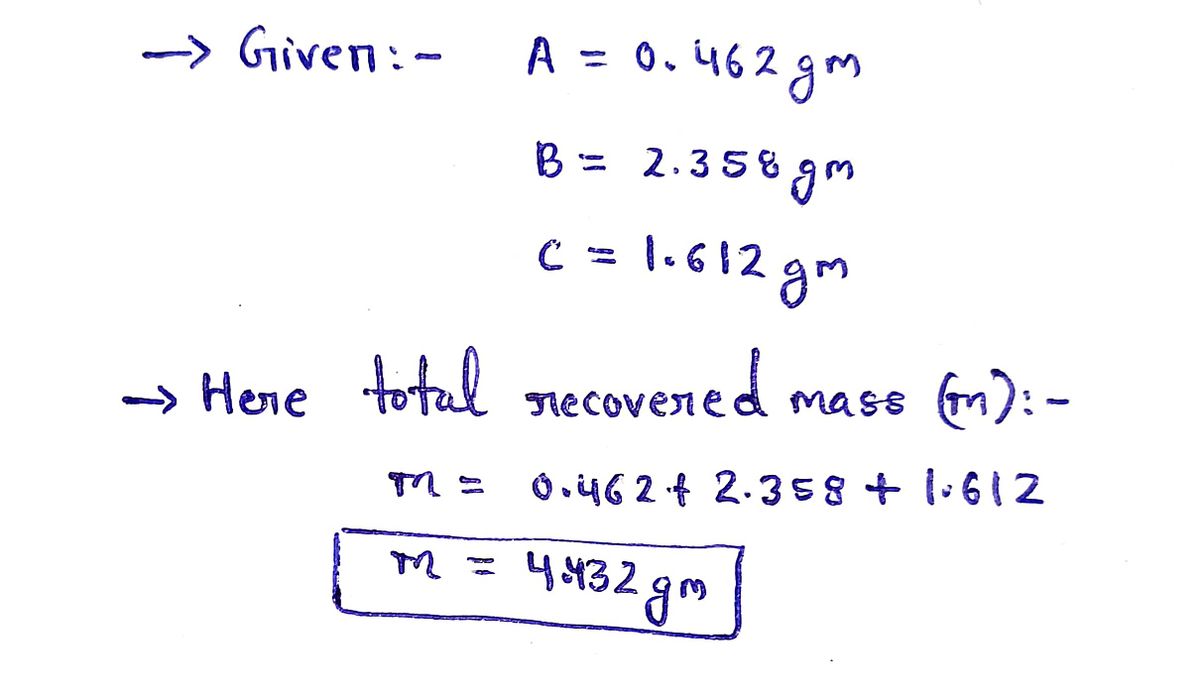 → Given:- A = 0.462 gm
B = 2.358 gm
C = 1.612 gm
→ Here total recovered mass (m):-
m = 0.462 + 2.358 + 1.612
m = 4.432 gm